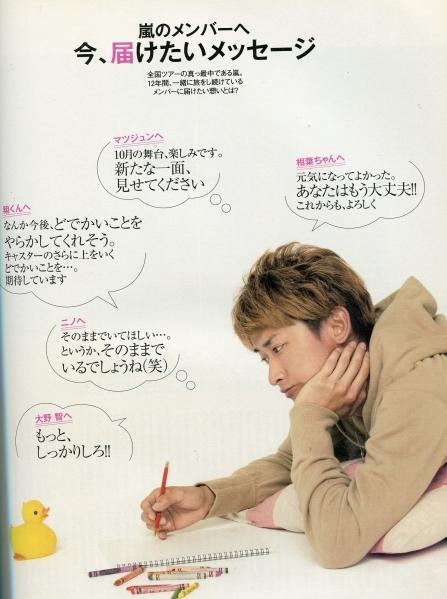 嵐のメンバーへ
今、届けたいメッセージ
全国ツアーの真っ最中である嵐。
12年間、一緒に旅をし続けている
メンバーに届けたい想いとは?
マツジュンへ
10月の舞台、楽しみです。
新たな一面、
見せてください
相葉ちゃんへ
元気になってよかった。
あなたはもう大丈夫!!
これからも、よろしく
翔くんへ
なんか今後、どでかいことを
やらかしてくれそう。
キャスターのさらに上をいく
どでかいことを…。
期待しています
ニノへ
そのままでいてほしい…。
というか、そのままで
いるでしょうね(笑)
大野 智へ
もっと、
しっかりしろ!!